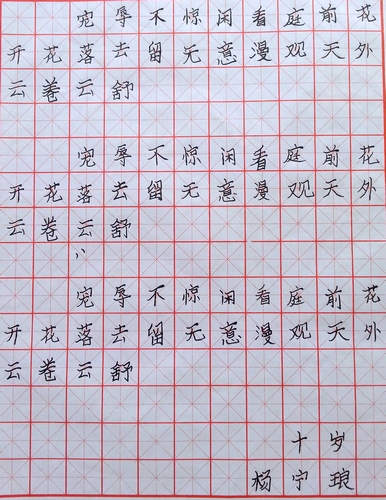 宠辱不惊闲看庭前花
开花落去留无意漫观天外
云卷云舒
宠辱不惊闲看庭前花
开花落去留无意漫观天外
云卷云舒
宠辱不惊闲看庭前花
开花落去留无意漫观天外
云卷云舒
十岁
杨宁琅